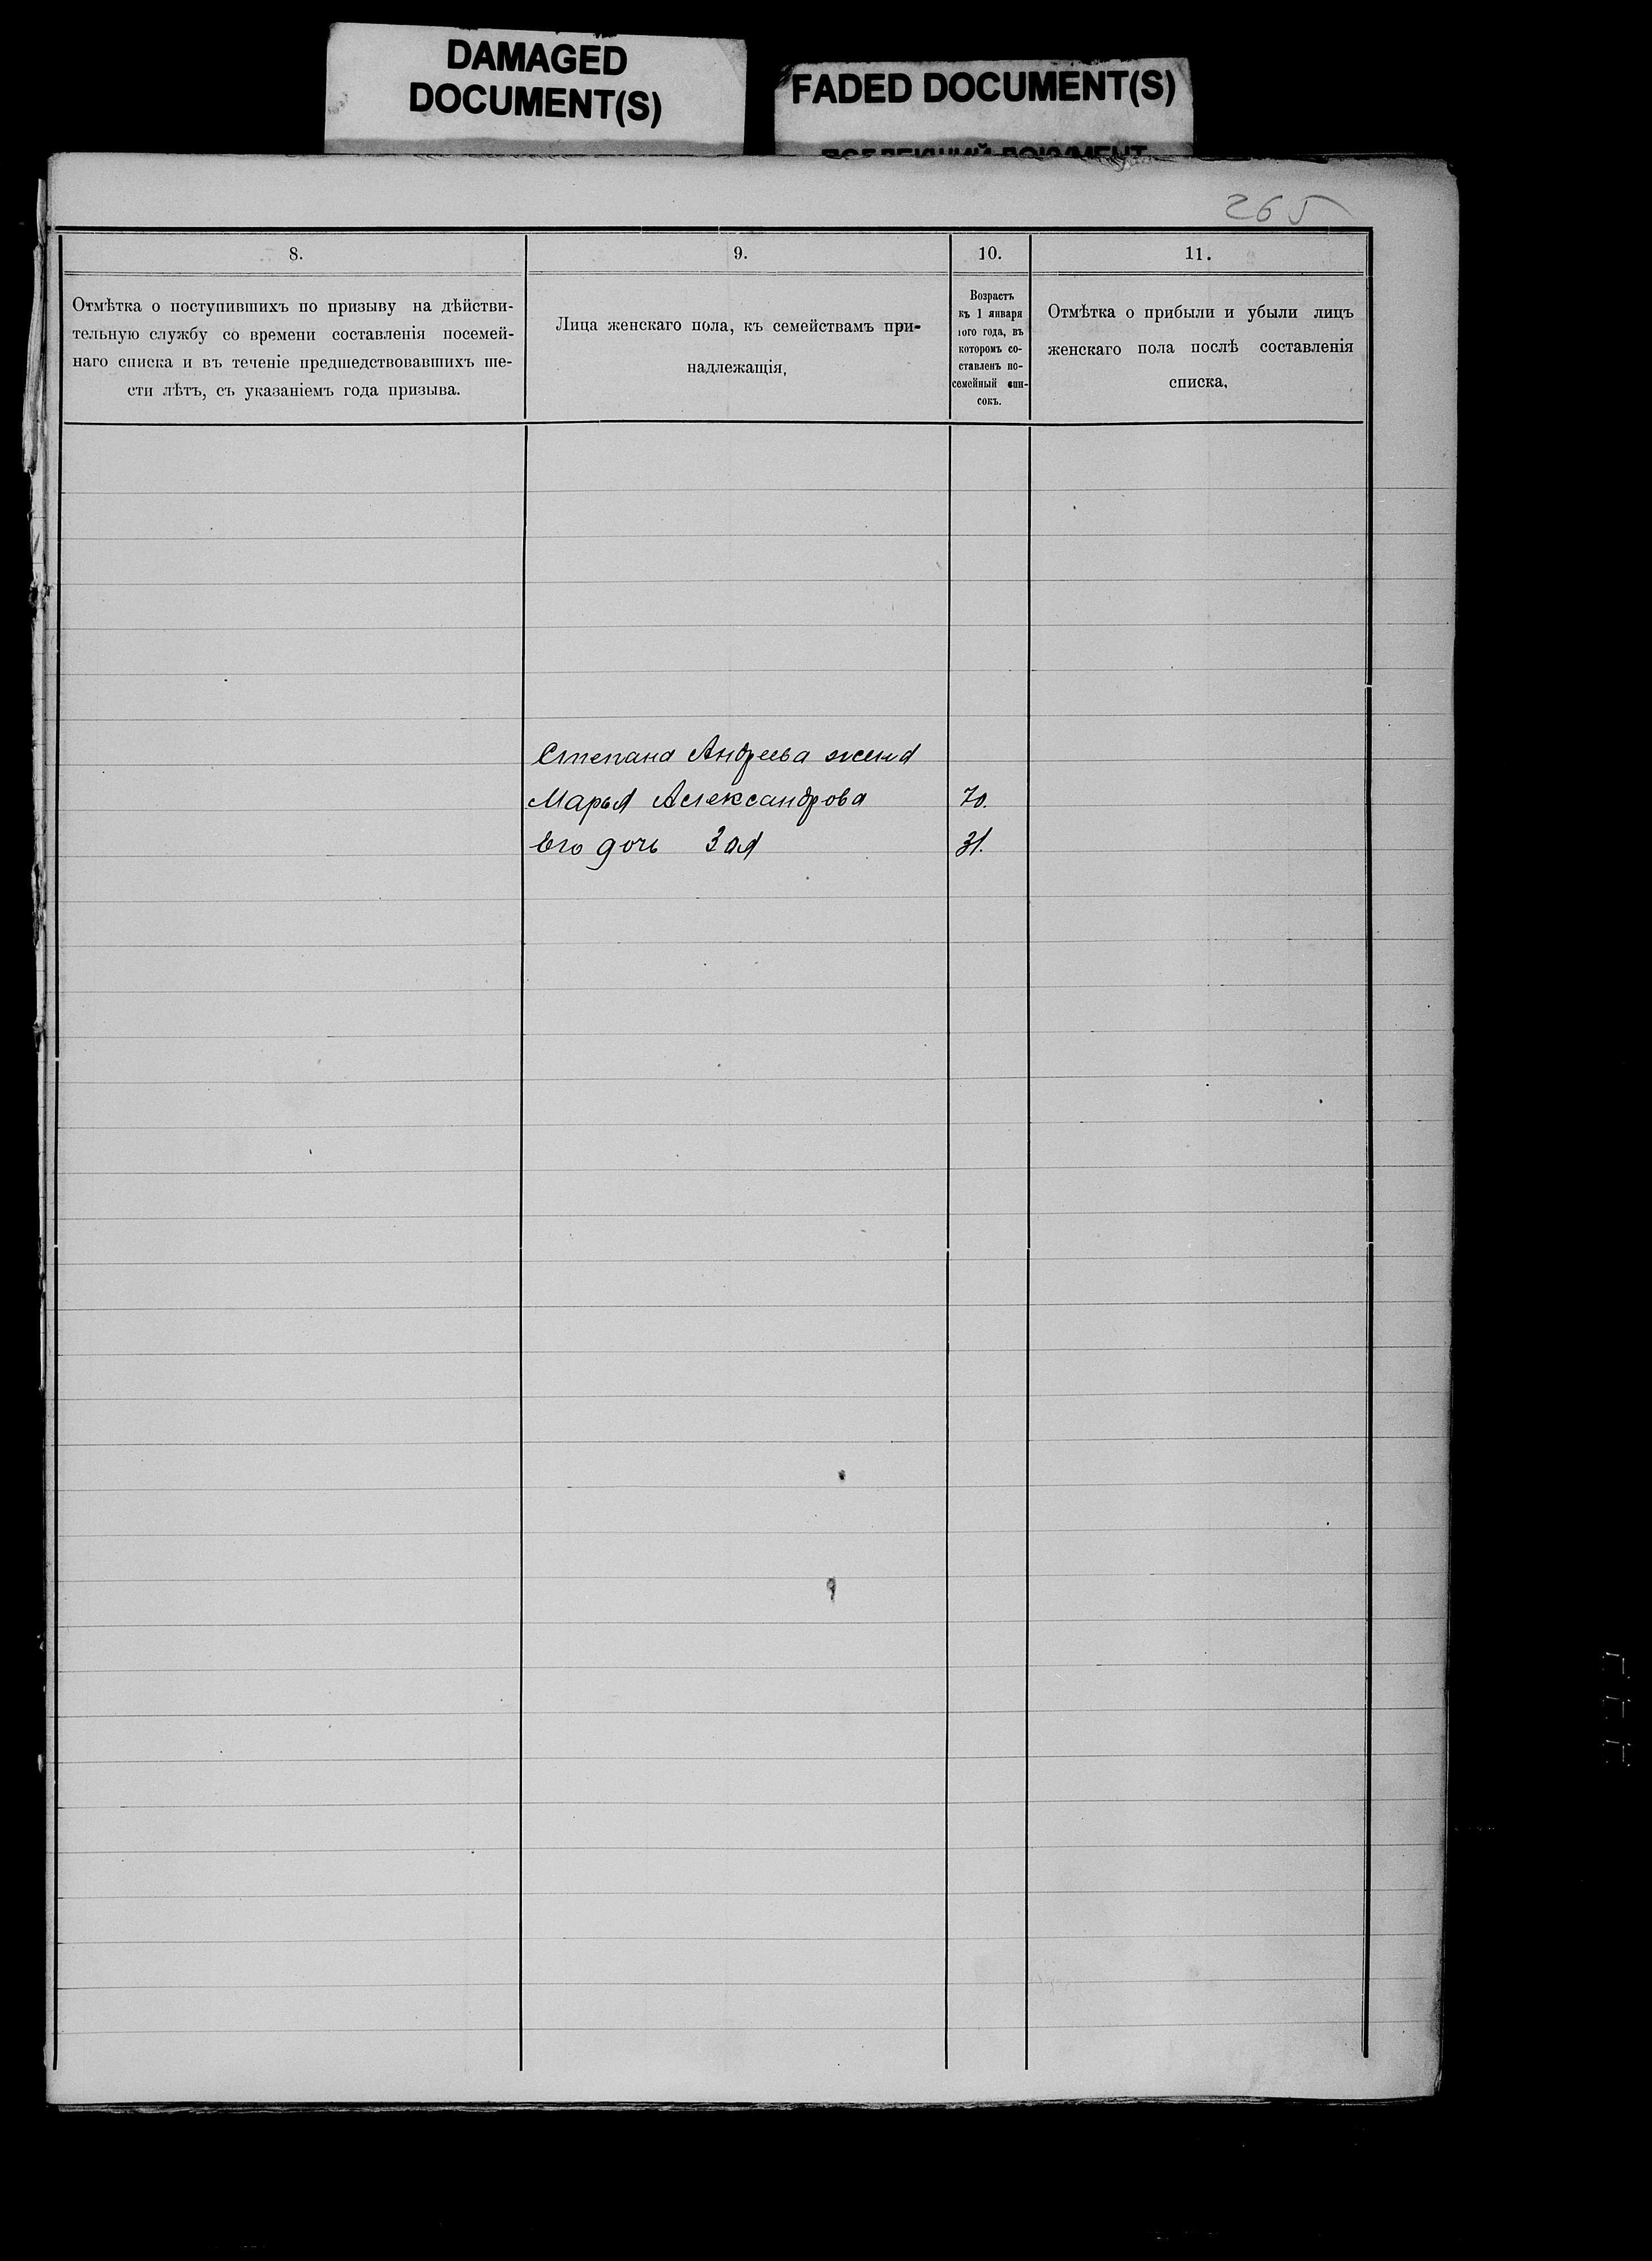 DAMAGED
DOCUMENT(S)
FADED DOCUMENT(S)
265
8.
Отмѣтка о поступившихъ по призыву на дѣйстви-
тельную службу со времени составленія посемей-
наго списка и въ теченіе предшедствовавшихъ ше-
сти лѣтъ, съ указаніемъ года призыва.
9.
Лица женскаго пола, къ семействамъ при-
надлежащія,
10.
Возрастъ
къ 1 января
того года, въ
которомъ со-
ставленъ по-
семейный спи-
сокъ.
11.
Отмѣтка о прибыли и убыли лицъ
женскаго пола послѣ составленія
списка,
Степана Андреева жена
Марья Александрова 70.
Его дочь Зоя 31.